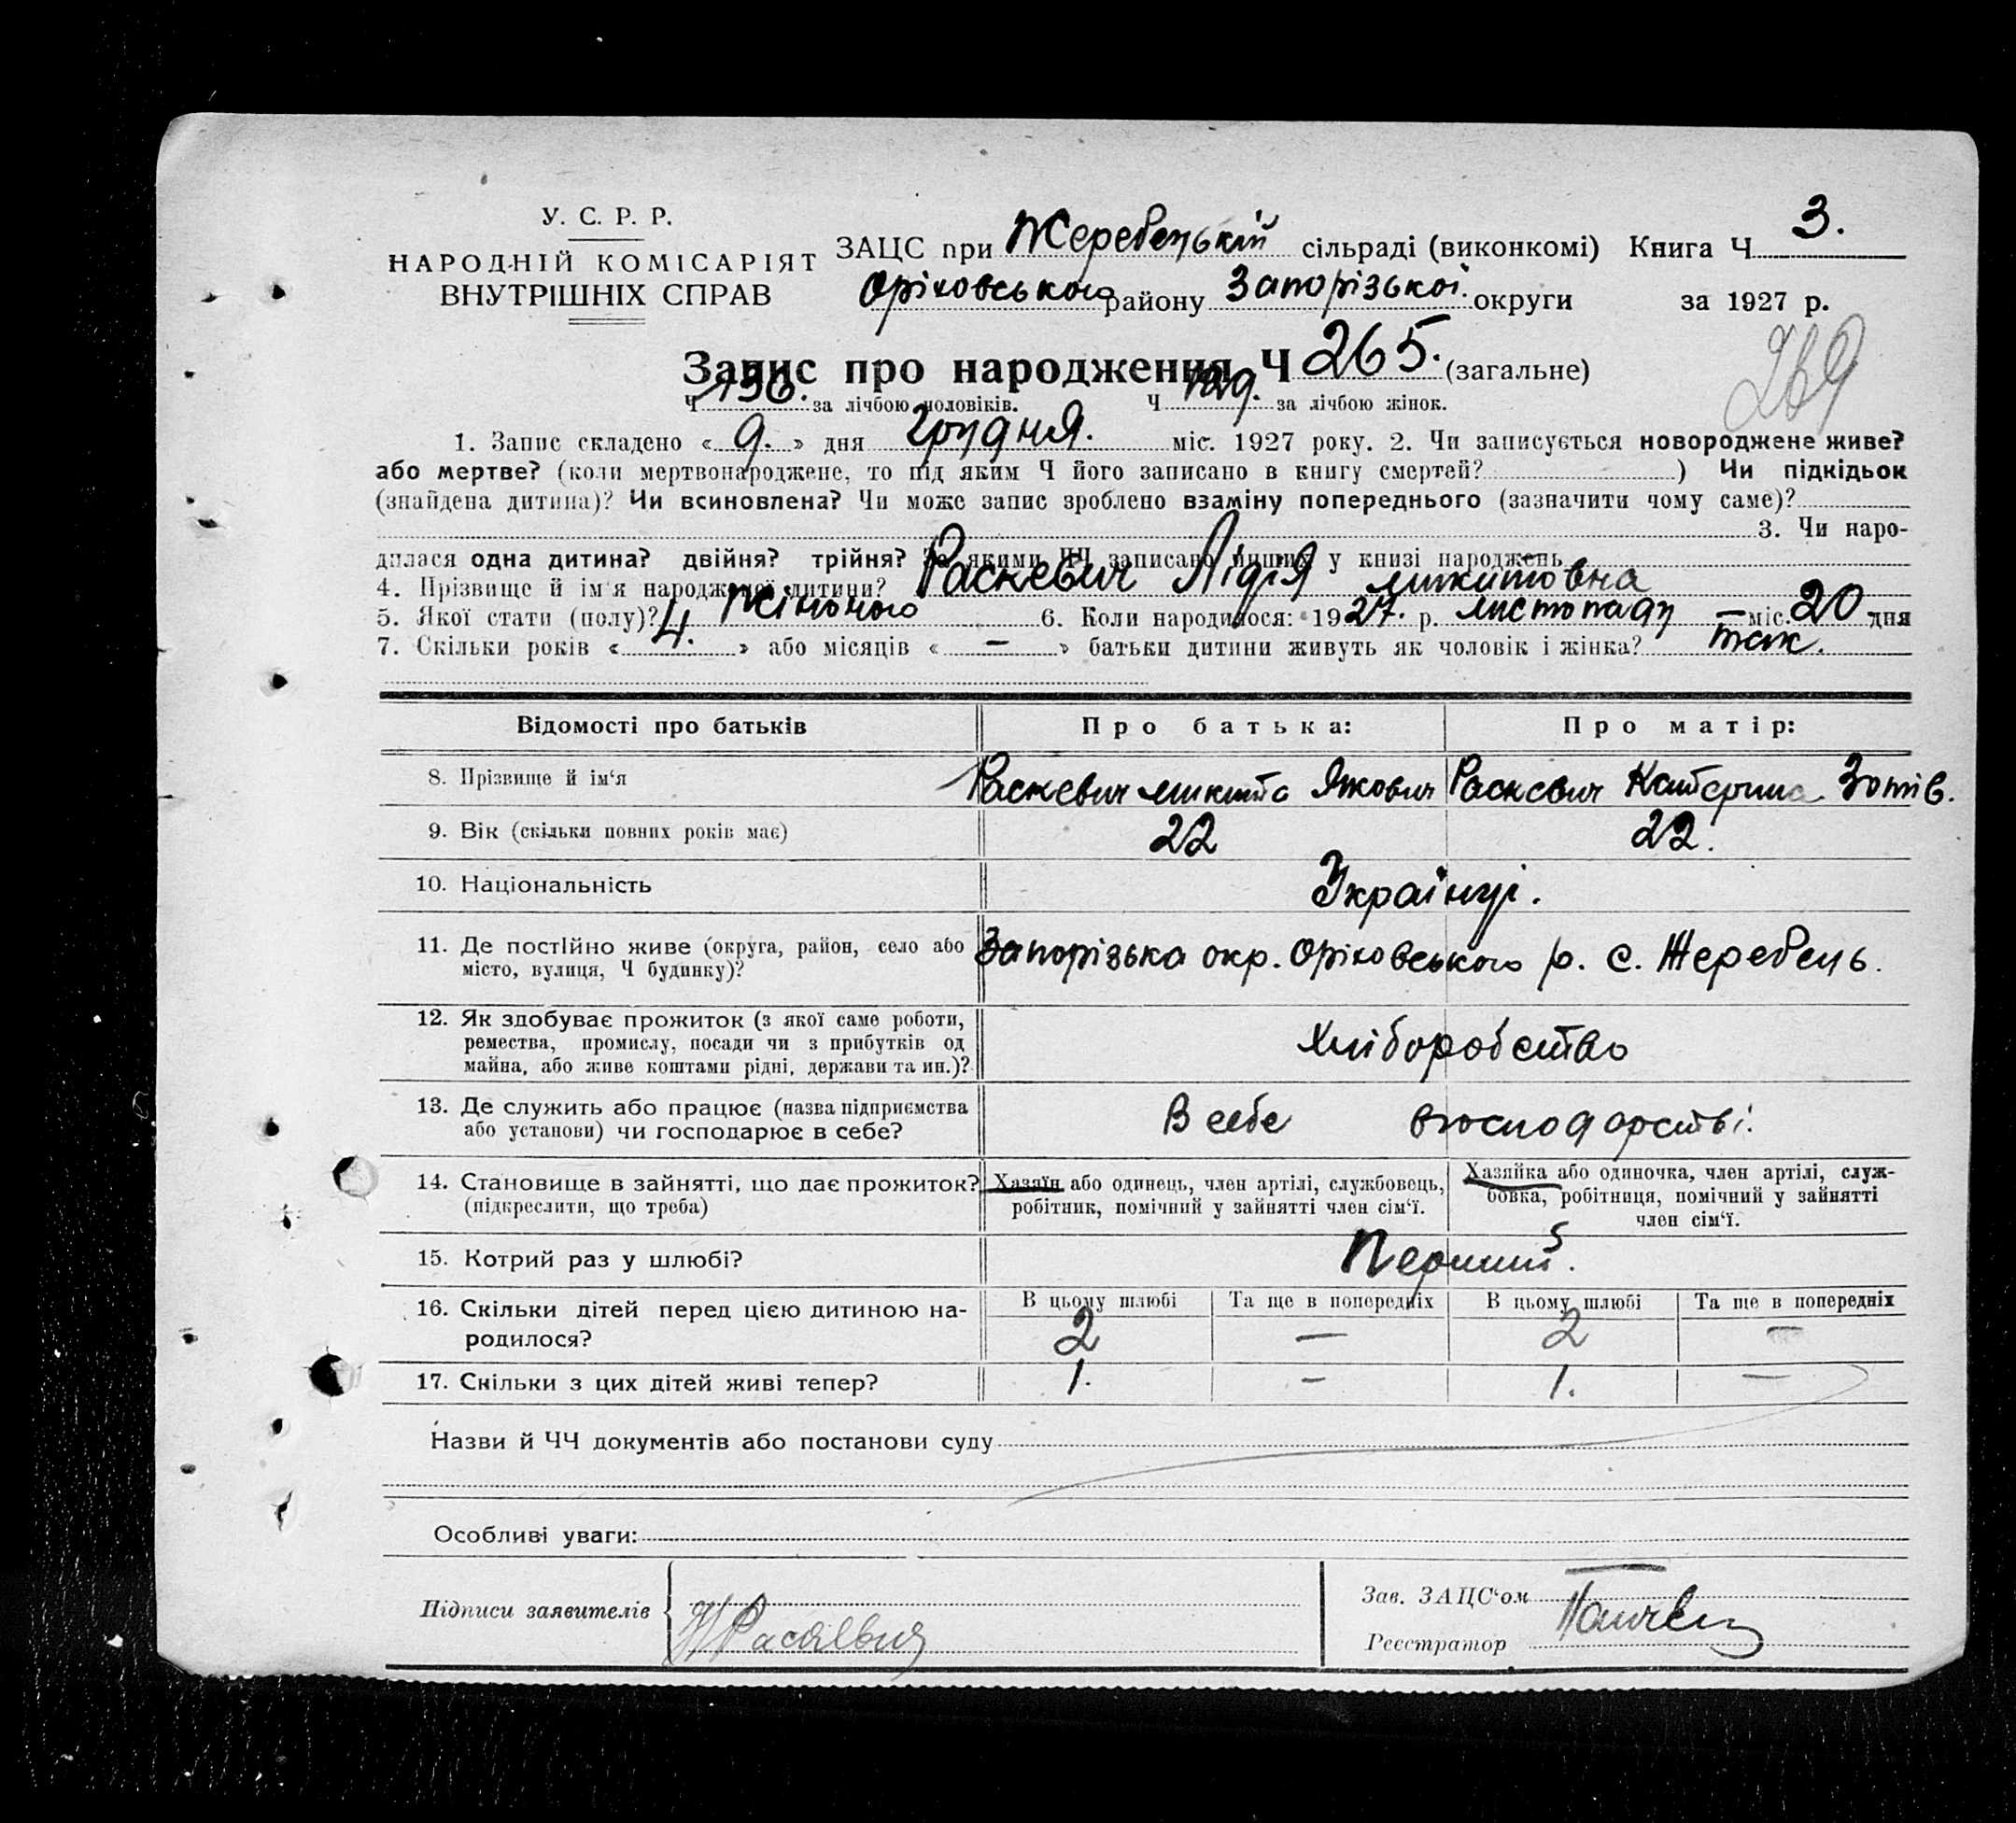 У. С. Р. Р.
НАРОДНІЙ КОМІСАРІЯТ
ВНУТРІШНІХ СПРАВ
ЗАЦС при Жеребецькій сільраді (виконкомі) Книга Ч 3.
Оріховського району Запорізької округи за 1927 р.
Запис про народження Ч 265. (загальне)
269
Ч 136. за лічбою чоловіків. Ч 129. за лічбою жінок.
1. Запис складено « 9. » дня Грудня. міс. 1927 року. 2. Чи записується новороджене живе?
або мертве? (коли мертвонароджене, то під яким Ч його записано в книгу смертей? ) Чи підкідьок
(знайдена дитина)? Чи всиновлена? Чи може запис зроблено взаміну попереднього (зазначити чому саме)?
3. Чи наро-
дилася одна дитина? двійня? трійня? За якими ЧЧ записано инших у книзі народжень
4. Прізвище й ім'я народженої дитини? Раскевич Лідія микитовна
5. Якої стати (полу)? Жіночого 6. Коли народилося: 1927. р. листопаду – міс. 20 дня
7. Скільки років « 4. » або місяців « – » батьки дитини живуть як чоловік і жінка? так.
Відомості про батьків Про батька: Про матір:
8. Прізвище й ім'я Раскевич микита Якович Раскевич Катерина Зотів.
9. Вік (скільки повних років має) 22 22.
10. Національність Українці.
11. Де постійно живе (округа, район, село або
місто, вулиця, Ч будинку)? Запорізька окр. Оріховського р. с. Жеребець.
12. Як здобуває прожиток (з якої саме роботи,
ремества, промислу, посади чи з прибутків од
майна, або живе коштами рідні, держави та ин.)? Хліборобство
13. Де служить або працює (назва підприємства
або установи) чи господарює в себе? В себе в госпо дорстві.
14. Становище в зайнятті, що дає прожиток?
(підкреслити, що треба)
Хазяїн або одинець, член артілі, службовець,
робітник, помічний у зайнятті член сім'ї.
Хазяйка або одиночка, член артілі, служ-
бовка, робітниця, помічний у зайнятті
член сім'ї.
15. Котрий раз у шлюбі? Перший.
16. Скільки дітей перед цією дитиною на-
родилося?
В цьому шлюбі Та ще в попередніх В цьому шлюбі Та ще в попередніх
2 – 2 –
17. Скільки з цих дітей живі тепер? 1. – 1. –
Назви й ЧЧ документів або постанови суду
Особливі уваги:
Підписи заявителів
Зав. ЗАЦС'ом
Реєстратор